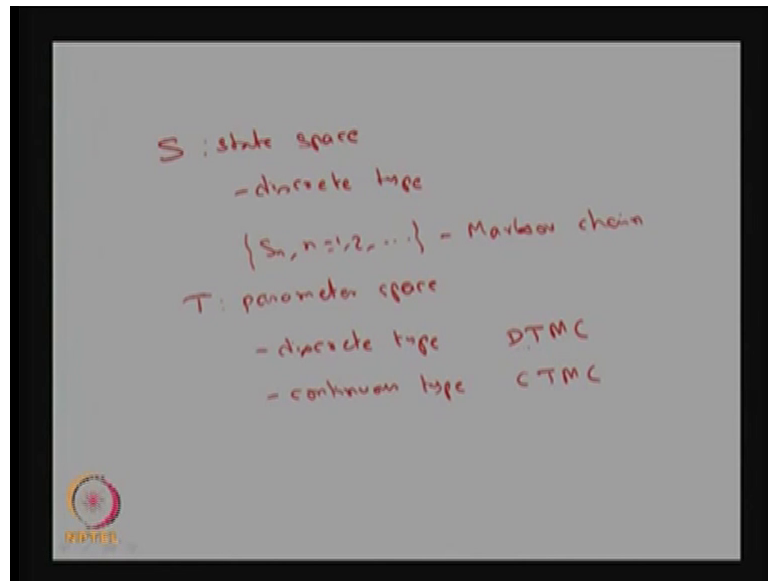 S : state space
- discrete type
{Sn, n=1,2, ...} - Markov chain
T : parameter space
- discrete type DTMC
- continuous type CTMC
NPTEL